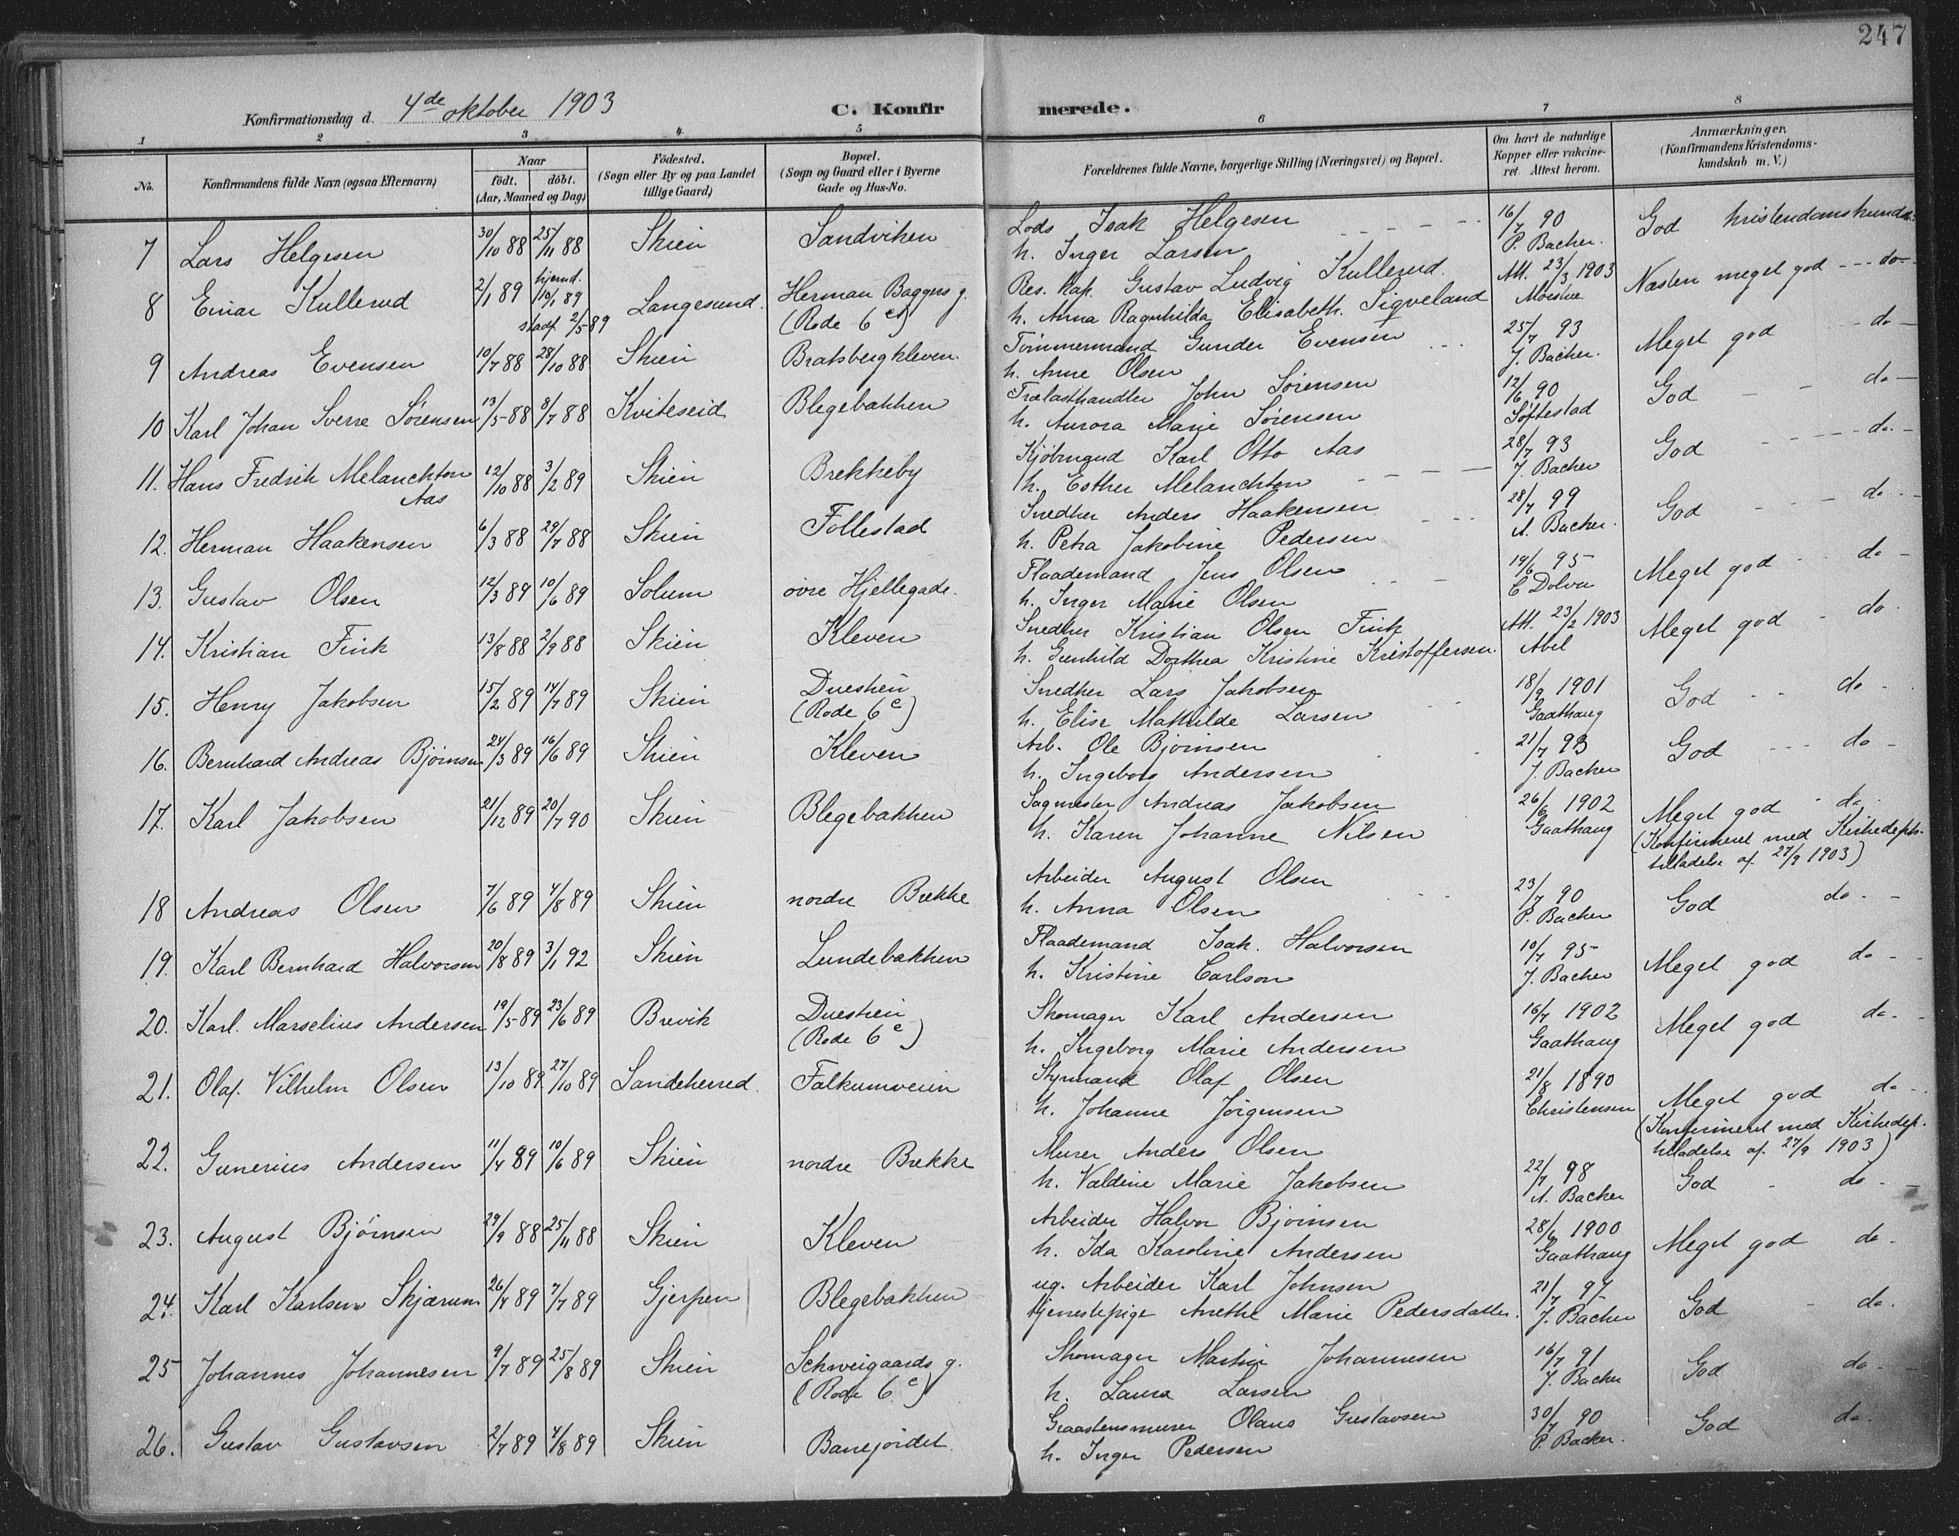 247
Konfirmationsdag d. 4de oktober 1903 C. Konfirmerede.
1 2 3 4 5 6 7 8
No. Konfirmandens fulde Navn (ogsaa Efternavn) Naar født. døbt. (Aar, Maaned og Dag) Fødested. (Sogn eller By og paa Landet tillige Gaard) Bopæl. (Sogn og Gaard eller i Byerne Gade og Hus-No. Forældrenes fulde Navne, borgerlige Stilling (Næringsvei) og Bopæl. Om havt de naturlige Kopper eller vakcineret. Attest herom. Anmærkninger. (Konfirmandens Kristendomskundskab m. V.)
7 Lars Helgesen 30/10 88 25/11 88 Skien Sandviken Lods Isak Helgesen 16/7 90 God kristendomskundsk.
h. Inger Larsen P. Backer.
8 Einar Kullerud 2/1 89 hjemd. 10/1 89 Langesund. Herman Baggers g. Res. kap. Gustav Ludvig Kullerud. Att. 23/3 1903 Næsten meget god - do -
stadf. 2/5 89 (Rode 6 c) h. Anna Ragnhilda Elisabeth Sigveland
9 Andreas Evensen 10/7 88 28/10 88 Skien Bratsbergkleven. Tømmermand Gunder Evensen 25/7 93 Meget god - do -
h. Anne Olsen J. Backer.
10 Karl Johan Sverre Sørensen 13/5 88 8/7 88 Kviteseid Blegebakken Trælasthandler John Sørensen 12/6 90 God - do -
h. Aurora Marie Sørensen Søftestad
11. Hans Fredrik Melanchton Aas 12/10 88 3/2 89 Skien Brekkeby Kjøbmand Karl Otto Aas 28/7 93 God - do -
h. Esther Melanchton J. Backer
12. Herman Haakensen 6/3 88 29/7 88 Skien Follestad Snedker Anders Haakensen 28/7 99 God - do -
h. Petra Jakobine Pedersen A. Backer.
13. Gustav Olsen 12/3 89 10/6 89 Solum øvre Hjellegade. Flaademand Jens Olsen 19/6 95 Meget god - do -
h. Inger Marie Olsen C Dolva
14. Kristian Fink 13/8 88 2/9 88 Skien Kleven Snedker Kristian Olsen Fink Att. 23/2 1903 Meget god - do.
h. Gunhild Dorthea Kristine Kristoffersen. Abel
15. Henry Jakobsen 15/2 89 14/7 89 Skien Duestien Snedker Lars Jakobsen 18/9 1901 God - do -
(Rode 6 c) h. Elise Mathilde Larsen Gaathaug
16. Bernhard Andreas Bjørnsen 24/3 89 16/6 89 Skien Kleven Arb. Ole Bjørnsen 21/7 93 God - do -
h. Ingeborg Andersen J. Backer
17. Karl Jakobsen 21/12 89 20/7 90 Skien Blegebakken Sagmester Andreas Jakobsen 26/6 1902 Meget god - do.
h. Karen Johanne Nilsen Gaathaug (Konfirmeret med Kirkedepts.
tilladelse af 27/9 1903)
18 Andreas Olsen 7/6 89 4/8 89 Skien nordre Brekke Arbeider August Olsen 23/7 90 God do. -
h. Anna Olsen P. Backer
19. Karl Bernhard Halvorsen 20/8 89 3/1 92 Skien Lundebakken Flaademand Isak. Halvorsen 10/7 95 Meget god do - -
h. Kristine Carlson J. Backer
20. Karl. Marselius Andersen 19/5 89 23/6 89 Brevik Duestien Skomager Karl Andersen 16/7 1902 Meget god do. -
(Rode 6 c) h. Ingeborg Marie Andersen Gaathaug
21. Olaf. Vilhelm Olsen 13/10 89 27/10 89 Sandeherred. Falkumveien Styrmand Olaf Olsen 21/8 1890 Meget god do -
h. Johanne Jørgensen Christensen (Konfirmeret med Kirkedep.
tilladelse af. 27/9 1903)
22. Gunerius Andersen 11/4 89 10/6 89 Skien nordre Brekke Murer Anders Olsen 22/7 98 God - do -
h. Valdine Marie Jakobsen A. Backer
23. August Bjørnsen 29/9 88 25/11 88 Skien Kleven Arbeider Halvor Bjørnsen 28/6 1900 Meget god do -
h. Ida Karoline Andersen Gaathaug
24. Karl Karlsen Skjærum 26/4 89 7/7 89 Gjerpen Blegebakken ug. Arbeider Karl Johnsen 21/7 97 God - do.
tjenestepige Anethe Marie Pedersdatter. J. Backer
25 Johannes Johannesen 9/7 89 25/8 89 Skien Schweigaards g. Skomager Martin Johannesen 16/7 91 God do. -
(Rode 6 c) h. Laura Larsen J. Backer
26. Gustav Gustavsen 2/7 89 4/8 89 Skien Banejordet. Graastensmurer Olaus Gustavsen 30/7 90 God do.
h. Inger Pedersen P. Backer.